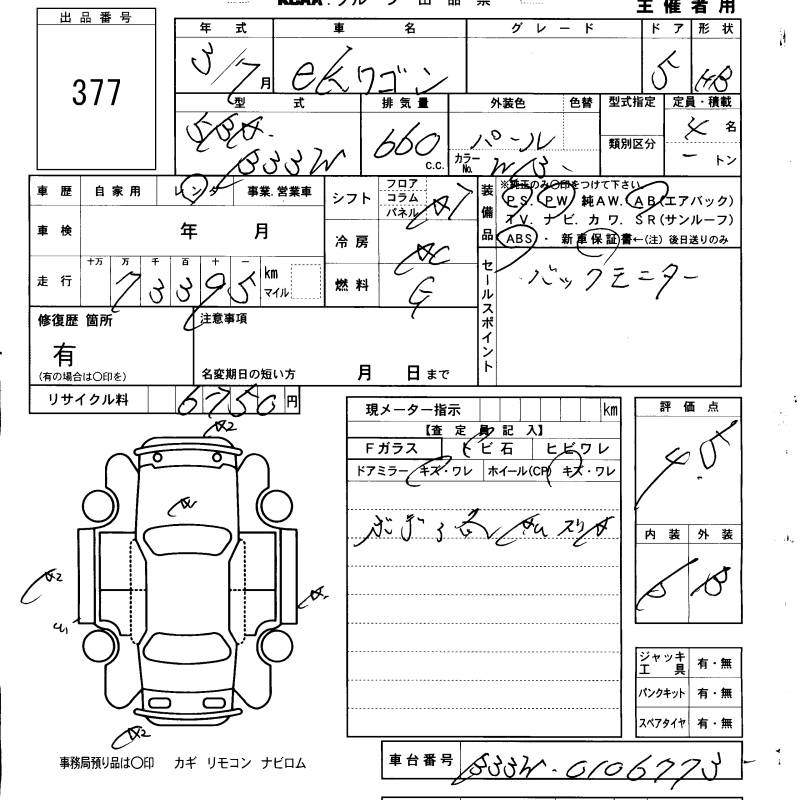 出品番号
主催者用
377
年式 車名 グレード ドア 形状
3/7月 eKワゴン 5 HB
型式 排気量 外装色 色替 型式指定 定員・積載
5BA- B33W 660 c.c. パール 4 名
カラーNo. W13 類別区分 ートン
車歴 自家用 レンタ 事業.営業車
シフト フロア コラム パネル AT
装備品 ※純正のみ〇印をつけて下さい。
PS. PW 純AW. AB(エアバック)
TV. ナビ. カワ. SR(サンルーフ)
ABS・ 新車保証書←(注) 後日送りのみ
車検 年 月
冷房 AC
走行 十万 万 千 百 十 一
73395 km マイル
燃料 G
セールスポイント バックモニター
修復歴 箇所
有
(有の場合は〇印を)
注意事項
名変期日の短い方 月 日まで
リサイクル料 6750 円
現メーター指示 km
【査定員記入】
Fガラス トビ石 ヒビワレ
ドアミラー キズ・ワレ ホイール(CP) キズ・ワレ
ボディ各
評価点
4.5
内装 外装
B B
A2
A2
A2
ジャッキ工具 有・無
パンクキット 有・無
スペアタイヤ 有・無
事務局預り品は〇印 カギ リモコン ナビロム
車台番号 B33W-0106773